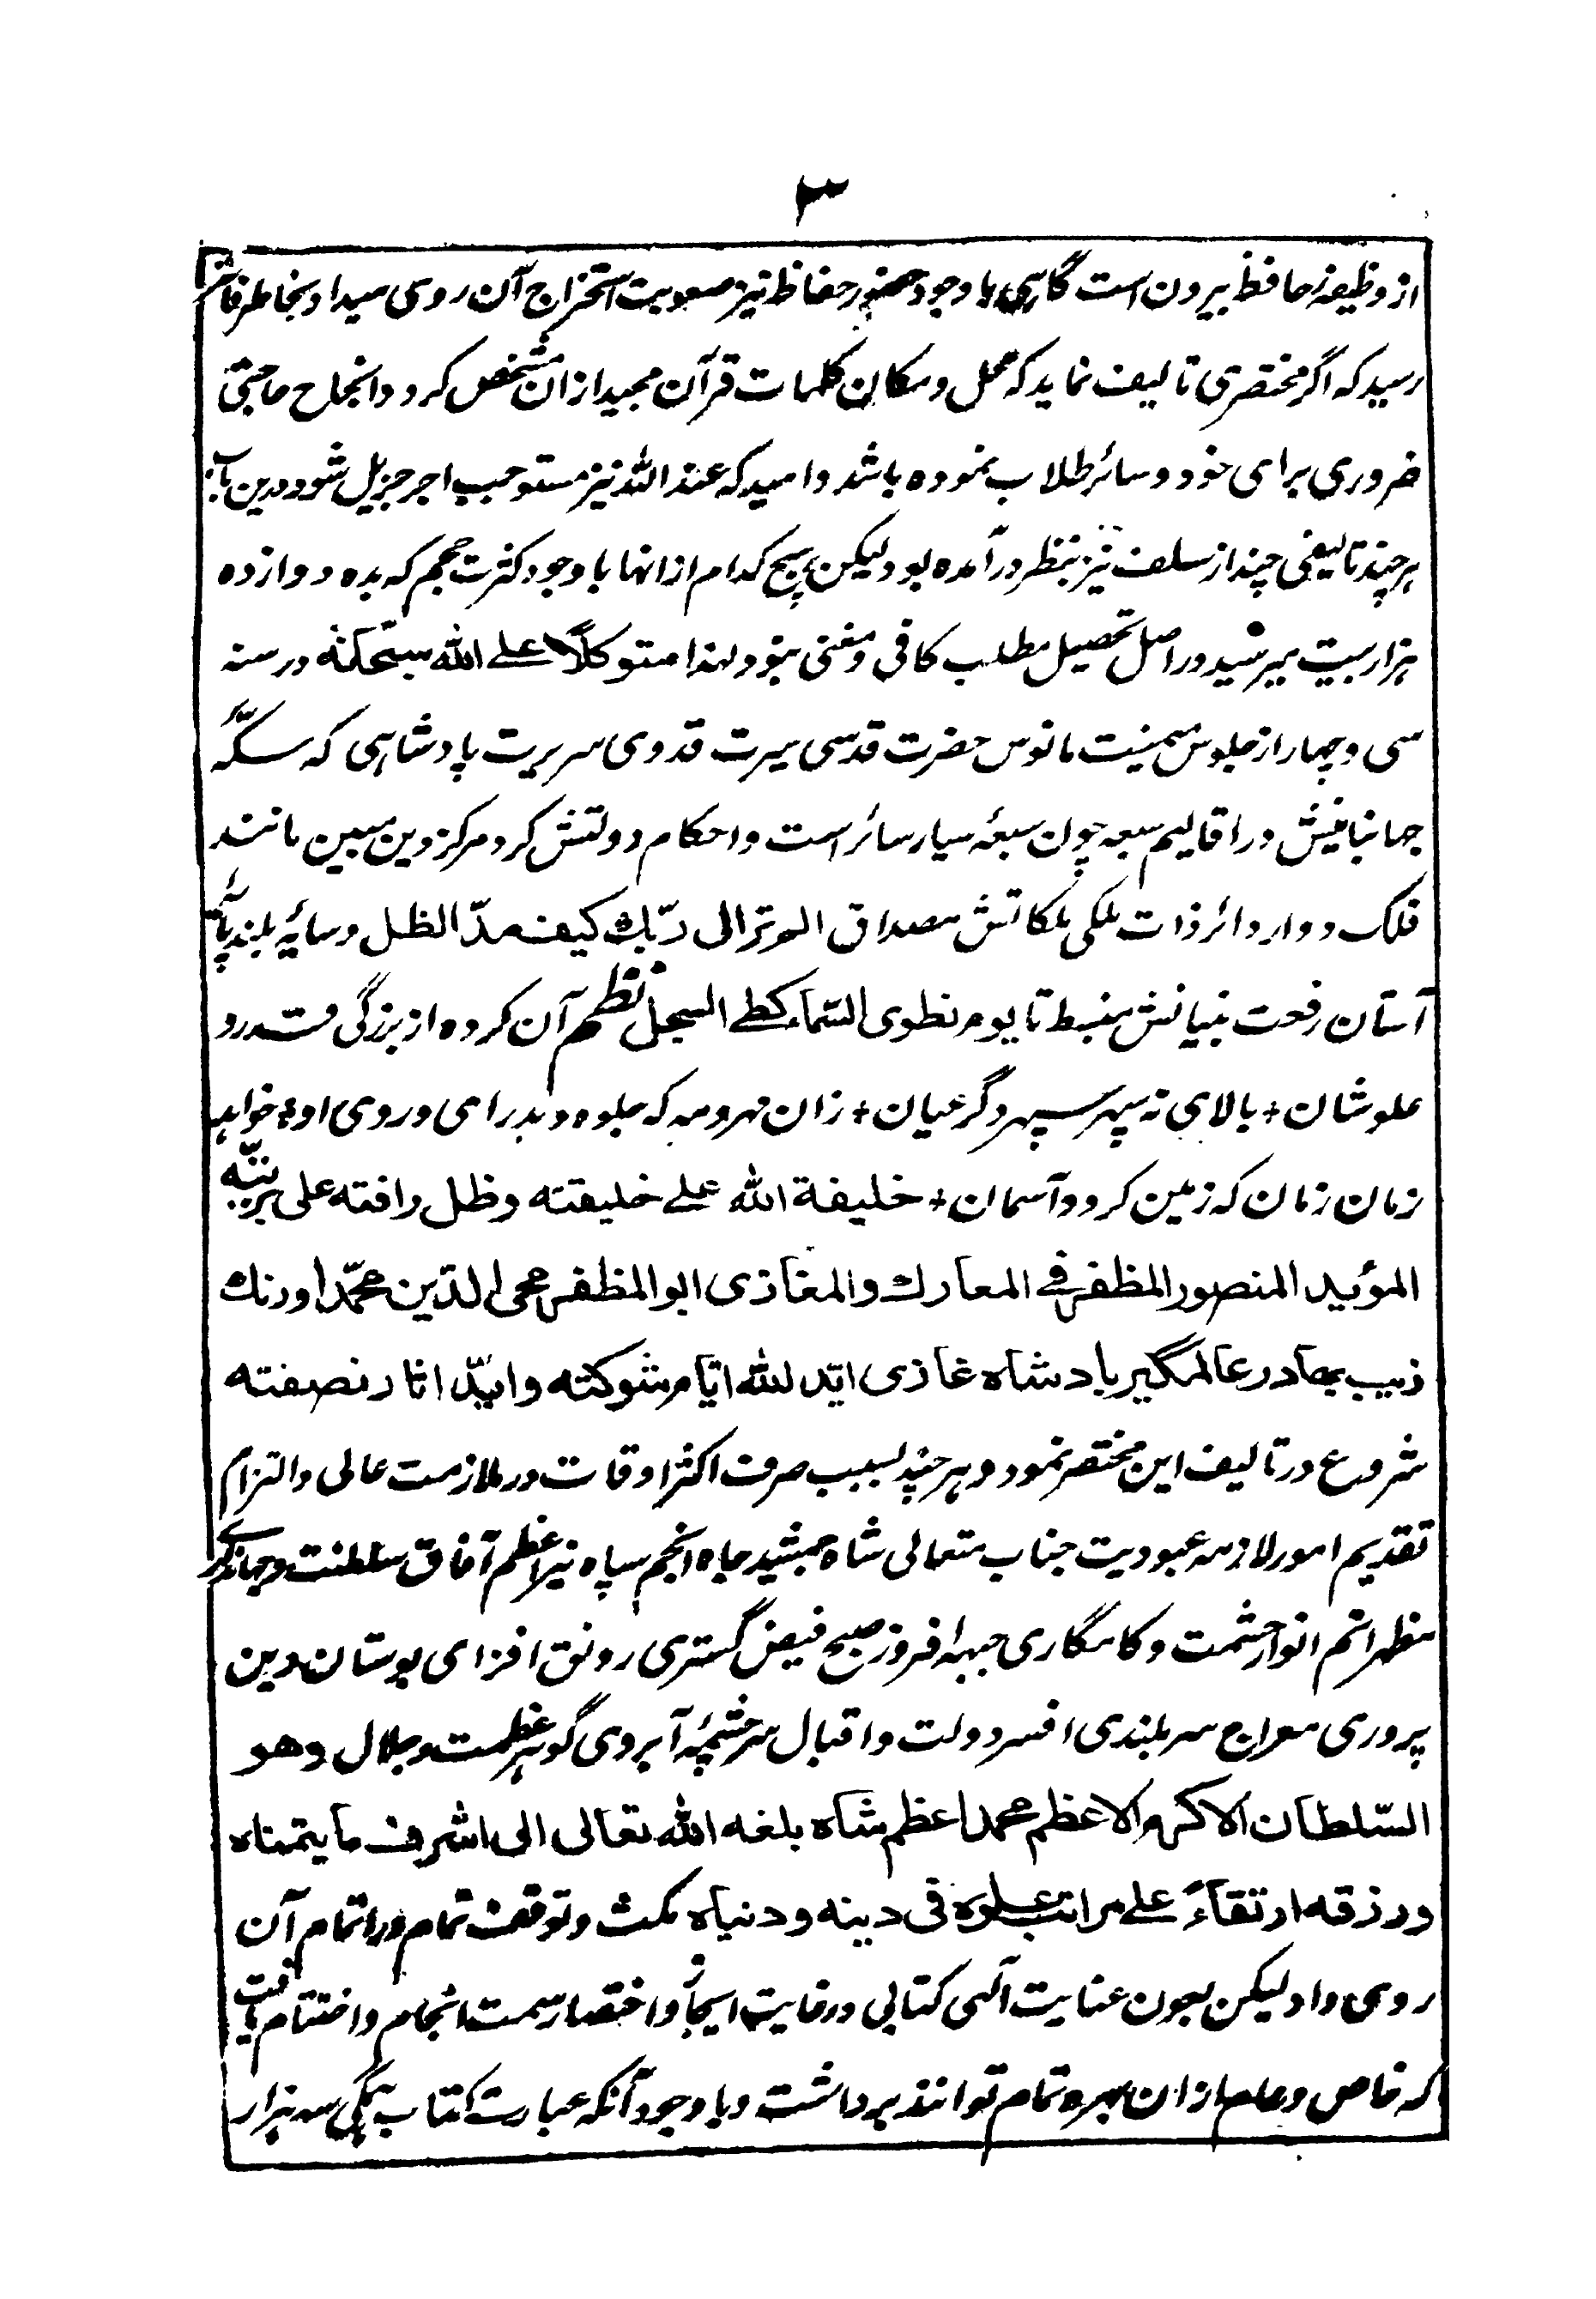 ۳
از وظیفهٔ حافظ بیرون است گاهی با وجود حضور حفاظ نیز صعوبت استخراج آن روی میداد بخاطر فاتر
رسید که اگر مختصری تالیف نماید که محل و مکان کلمات قرآن مجید ازان مشخص گردد و انجاح حاجتی
ضروری برای خود و سائر طلاب نموده باشد و امید که عند الله نیز مستوجب اجر جزیل شود درین باب
هر چند تالیفی چند از سلف نیز بنظر در آمده بود لیکن هیچ کدام از انها با وجود کثرت حجم که بده دوازده
هزار بیت میرسید در اصل تحصیل مطلب کافی و مغنی نبود لهذا متوکلًا علے الله سبحانه در سنه
سی و چهار از جلوس میمنیت مانوس حضرت قدسی سیرت قدوی سریرت پادشاهی که سکّهٔ
جهانبانیش در اقالیم سبعه چون سبعهٔ سیار سائر است و احکام دولتش گرد مرکز دین مبین مانند
فلک دوار دائر ذات ملکی ملکاتش مصداق الم تر الی ربّك کیف مدّ الظل و سایهٔ بلند پایهٔ
آستان رفعت بنیانش منبسط تا یوم نطوی السّماء کطے السجل نظم آن کرده از بزرگی قدر و
علو شان + بالای نه سپهر سپهر دگر عیان + زان مهر و مه که جلوه دهد رای و روی او + خواهد
زمان زمان که زمین گردد آسمان + خلیفة الله علے خلیقته وظل رافته علی بریّته
المؤید المنصور المظفر فے المعارك والمغازی ابو المظفر محی الدّین محمّد اورنك
زیب بهادر عالمگیر بادشاه غازی ابّد الله ایّام شوکته وایّد اثار نصفته
شروع در تالیف این مختصر نمود و هر چند بسبب صرف اکثر اوقات در ملازمت عالی و التزام
تقدیم امور لازمه عبودیت جناب متعالی شاه جمشید جاه انجم سپاه نیر اعظم آفاق سلطنت و جهانگیرے
مظهر اتم انوار حشمت و کامگاری جبهه افروز صبح فیض گستری رونق افزای بوستان دین
پروری معراج سر بلندی افسر دولت و اقبال سرچشمهٔ آبروی گوهر عظمت و جلال وهو
السّلطان الاکرم والاعظم محمد اعظم شاه بلغه الله تعالی الی اشرف ما یتمناه
ورزقه ارتقاءً علے مراتب علوه فی دینه و دنیاه مکث و توقف تمام در اتمام آن
روی داد لیکن بعون عنایت آلهی کتابی در غایت ایجاز و اختصار سمت انجام و اختتام یافت
که خاص و عام ازان بهره تمام توانند برداشت و با وجود آنکه عبارت کتاب بتگی سه هزار